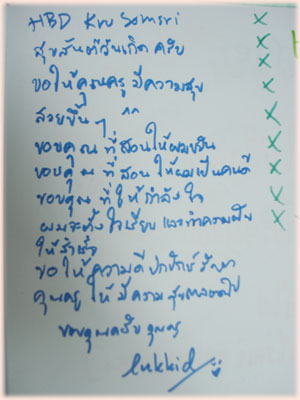 HBD Kru Somsri
สุขสันต์วันเกิด ครับ
ขอให้คุณครู มีความสุข
สวยขึ้น ๆ ^^
ขอบคุณ ที่สอนให้ผมขยัน
ขอบคุณ ที่สอน ให้ผมเป็นคนดี
ขอบคุณ ที่ให้กำลังใจ
ผมจะตั้งใจเรียน และทำความฝัน
ให้สำเร็จ
ขอให้ความดี ปกปักษ์ รักษา
คุณครู ให้ มีความสุขตลอดไป
ขอบคุณครับ คุณครู
lukkid